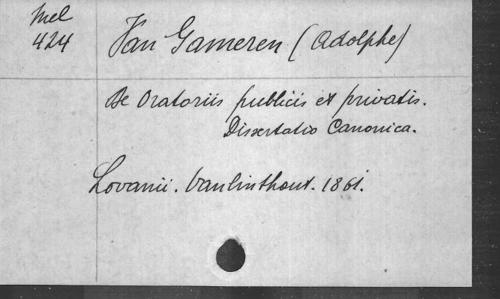 Mel
424
Van Gameren (Adolphe)
De Oratoriis publicis et privatis.
Dissertatio Canonica.
Lovanii. Vanlinthout. 1861.